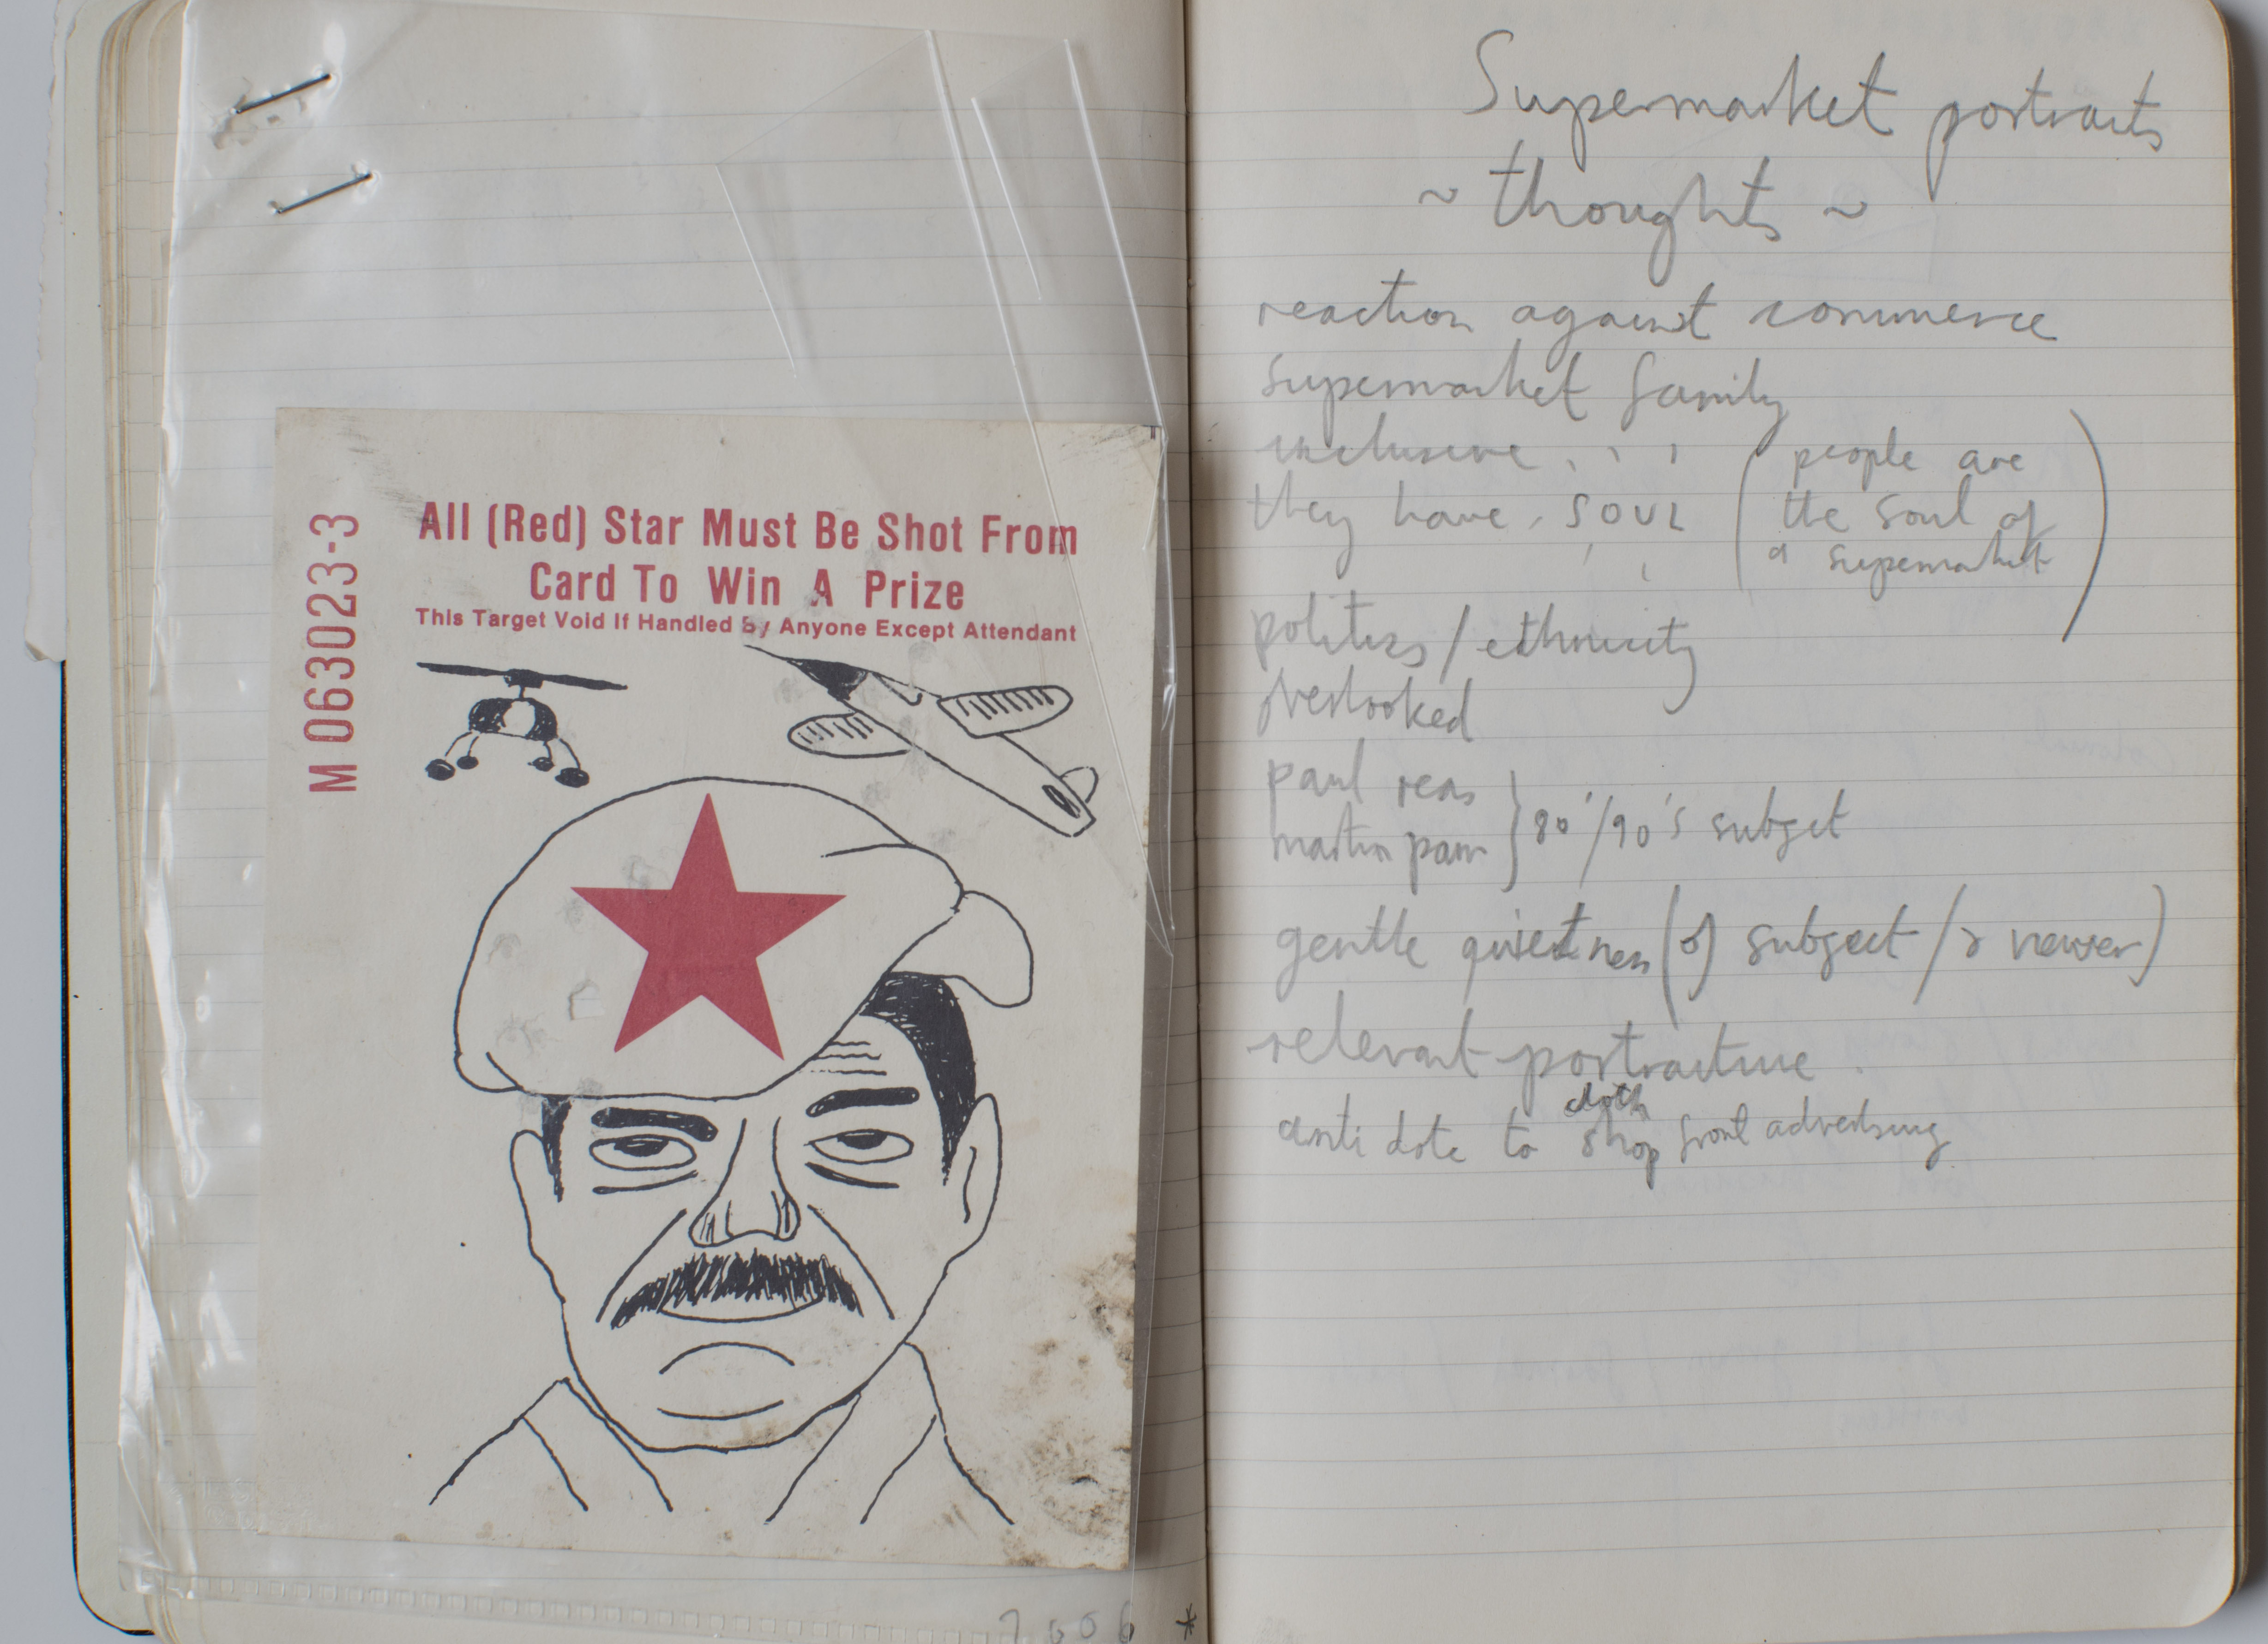 M 063023-3
All (Red) Star Must Be Shot From
Card To Win A Prize
This Target Void If Handled By Anyone Except Attendant
2006 *
Supermarket portraits
~ thoughts ~
reaction against commerce
supermarket family
inclusive
they have SOUL
(people are
the soul of
a supermarket)
politics / ethnicity
overlooked
paul reas
martin parr } 80'/90's subget
gentle quietness (of subject / & viewer)
relevant portraiture.
cloth
anti dote to shop front advertising